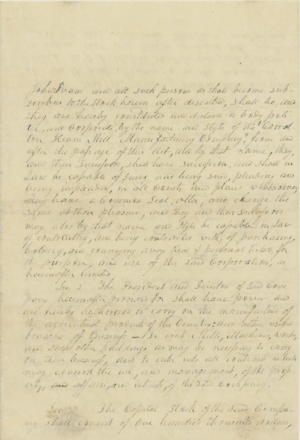 John Evans and all such persons as shall become sub-
scribers to the Stock herein after described, shall be, and
they are hereby constituted and declared a body poli
tic, and Corporate, by the name and style of the
Steam Mill Manufacturing Company, from and
after the passage of this Act, and by that name, they,
and their Successors, shall have succession, and shall in
Law be capable of suing, and being sued, pleading and
being impleaded, in all Courts and places whatsoever
may have a Common Seal, alter, and change the
same at their pleasure, and they and their successors
may also by that name and style be capable in law
of contracting, and being contracted with, of purchasing,
holding, and conveying away real & personal estate, for
the purposes, and use of the said Corporation, as
hereinafter limited.
Sec. 2. The President and Directors of said Com
pany hereinafter provided for shall have power and
are hereby authorized to carry on the manufacture of
the agricultural products of the
branches of business to
and erect other buildings as may be necessary to carry
on their business, and to enter into all contracts which
may concern the use, and management, of the prop
erty, and affairs, and interests, of the said Company.
The Capital Stock of the said Compa
ny shall consist of One hundred thousand dollars,